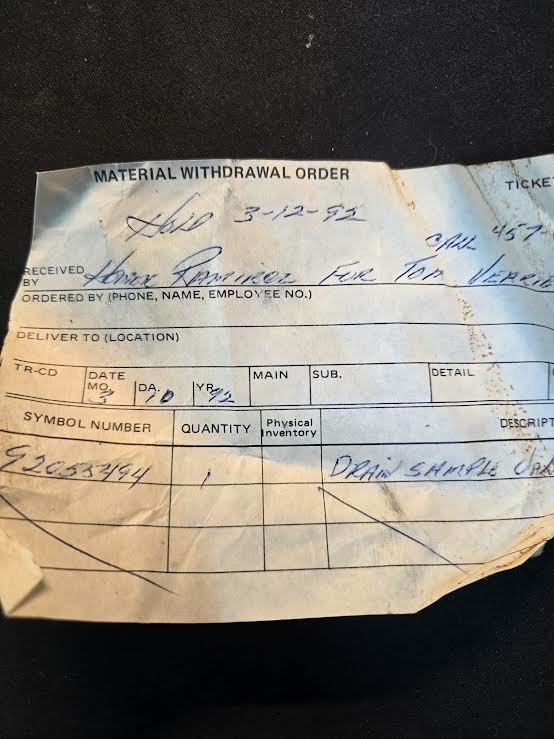 MATERIAL WITHDRAWAL ORDER
TICKE
Hold 3-12-92
CALL 457-
RECEIVED BY Ramirez FOR TOM
ORDERED BY (PHONE, NAME, EMPLOYEE NO.)
DELIVER TO (LOCATION)
TR-CD DATE MAIN SUB. DETAIL
MO. 3 DA. 10 YR. 92
SYMBOL NUMBER QUANTITY Physical Inventory DESCRIPT
92055494 1 DRAIN SAMPLE